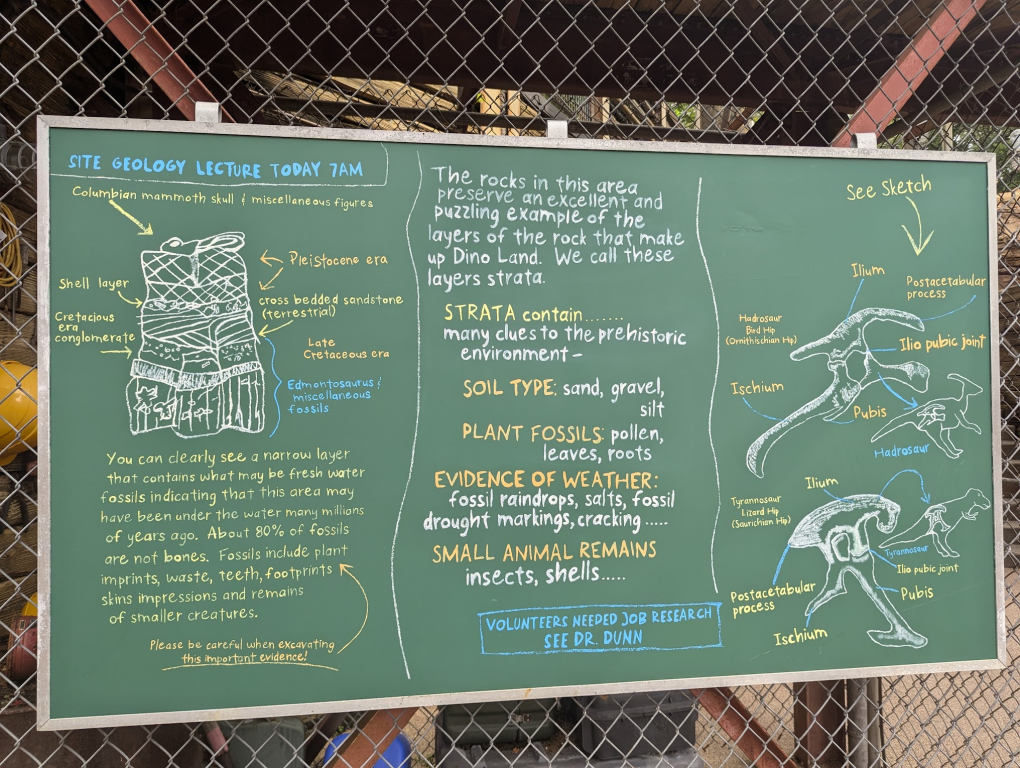 SITE GEOLOGY LECTURE TODAY 7AM
Columbian mammoth skull & miscellaneous figures
Pleistocene era
Shell layer
cross bedded sandstone
(terrestrial)
Cretacious
era
conglomerate
Late
Cretaceous era
Edmontosaurus &
miscellaneous
fossils
You can clearly see a narrow layer
that contains what may be fresh water
fossils indicating that this area may
have been under the water many millions
of years ago. About 80% of fossils
are not bones. Fossils include plant
imprints, waste, teeth, footprints
skins impressions and remains
of smaller creatures.
Please be careful when excavating
this important evidence!
The rocks in this area
preserve an excellent and
puzzling example of the
layers of the rock that make
up Dino Land. We call these
layers strata.
STRATA contain.......
many clues to the prehistoric
environment -
SOIL TYPE: sand, gravel,
silt
PLANT FOSSILS: pollen,
leaves, roots
EVIDENCE OF WEATHER:
fossil raindrops, salts, fossil
drought markings, cracking .....
SMALL ANIMAL REMAINS
insects, shells.....
VOLUNTEERS NEEDED JOB RESEARCH
SEE DR. DUNN
See Sketch
Ilium
Postacetabular
process
Hadrosaur
Bird Hip
(Ornithischian Hip)
Ilio pubic joint
Ischium
Pubis
Hadrosaur
Ilium
Tyrannosaur
Lizard Hip
(Saurichian Hip)
Tyrannosaur
Ilio pubic joint
Postacetabular
process
Pubis
Ischium